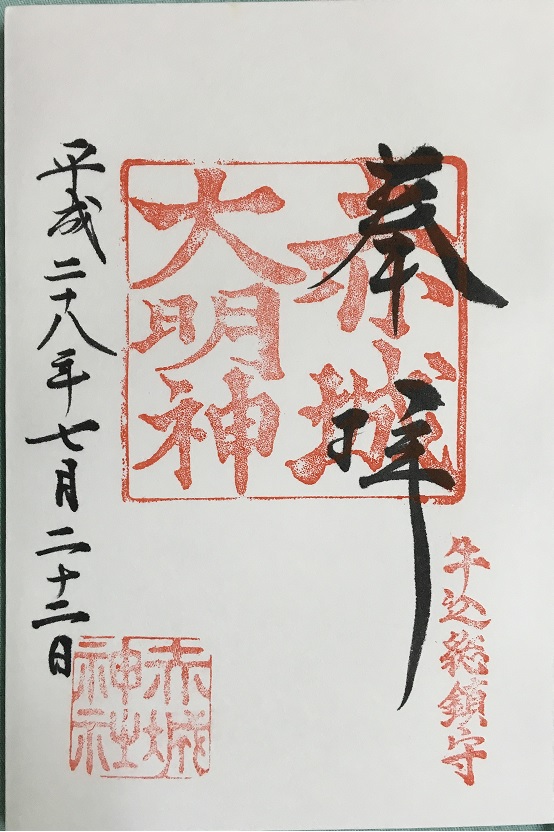 奉拝
牛込総鎮守
赤城
大明神
平成二十八年七月二十二日
赤城
神社